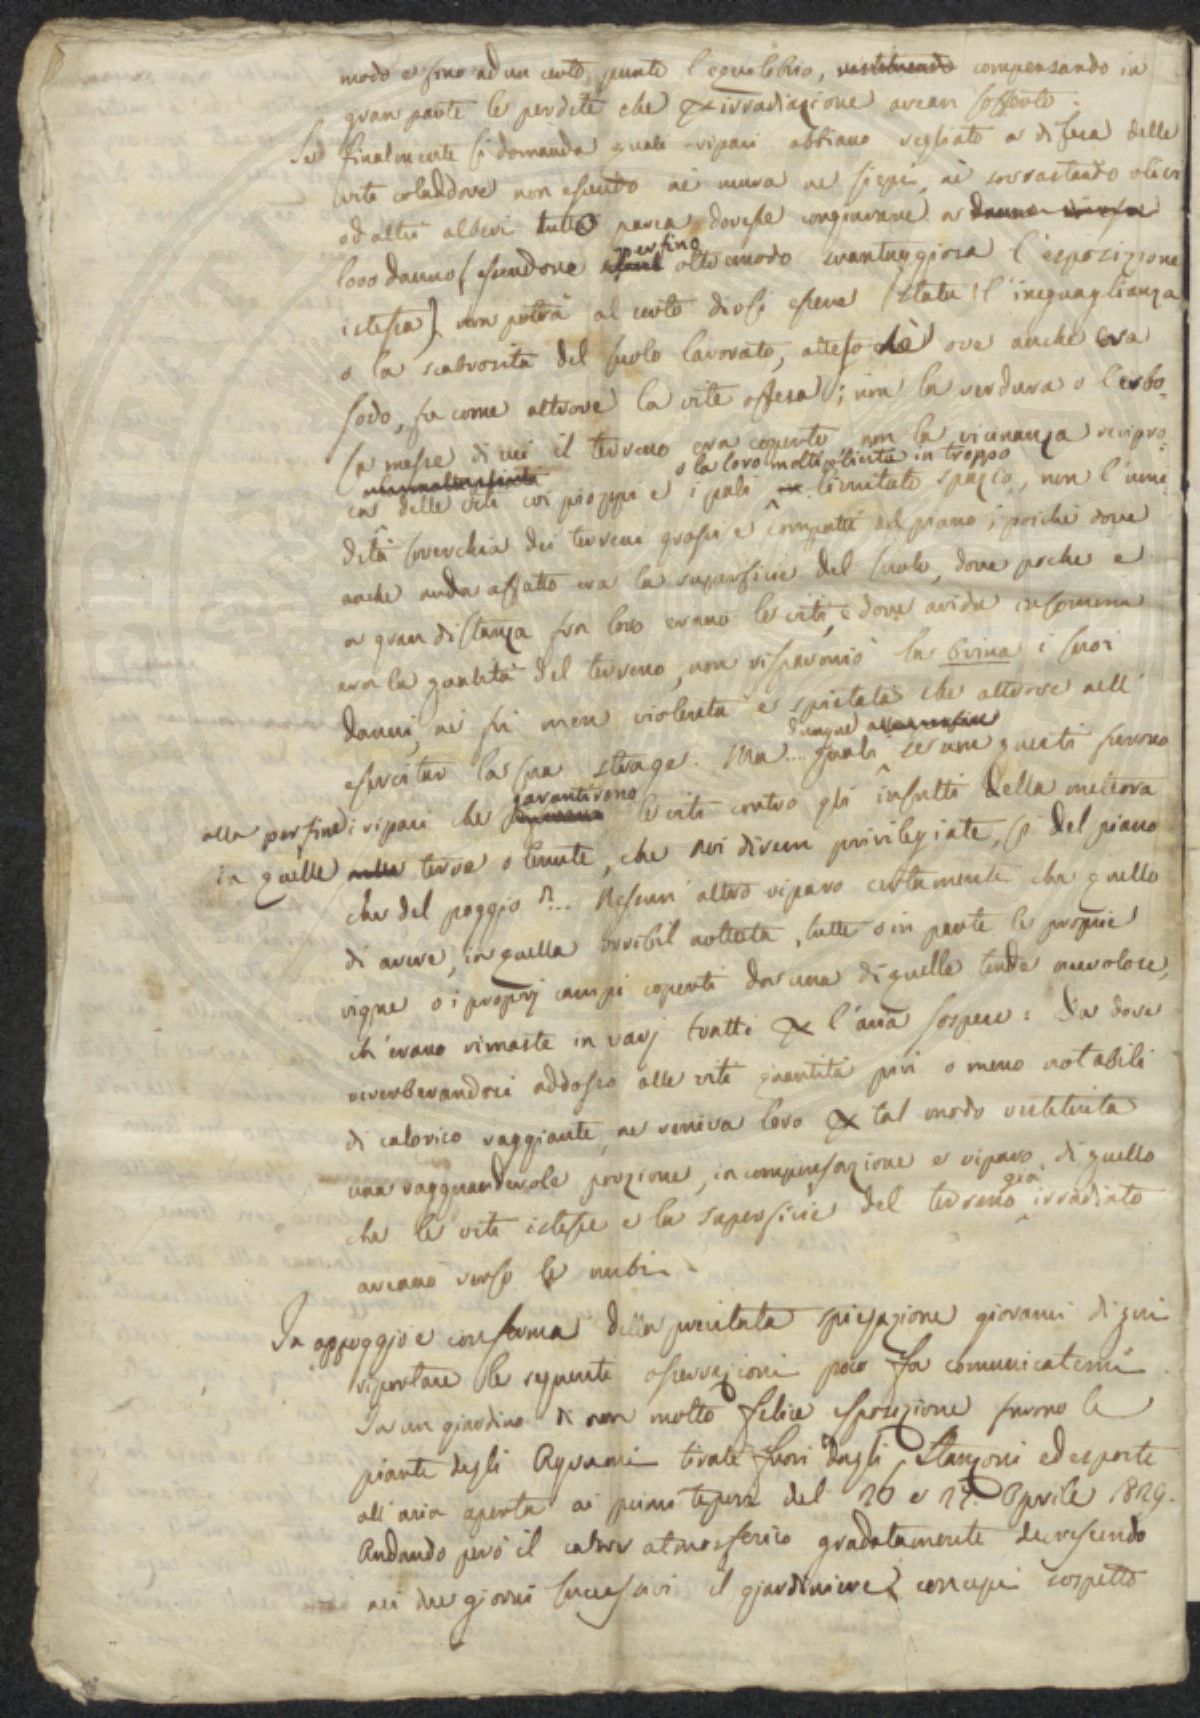 modo e fino ad un certo punto l'equilibrio, restituendo compensando in
gran parte le perdite che p irradiazione avean sofferto.
Se finalmente si domanda quali ripari abbiano vegliato a difesa delle
vite coladdove non essendo nè mura ne siepi, nè sovrastando olivi
od altri alberi tutto parea dovesse congiurare a danno
loro danno (essendone perfino oltremodo svantaggiosa l'esposizione
istessa) non potrà al certo dirsi essere stata l'ineguaglianza
o la scabrosità del suolo lavorato, atteso chè ove anche era
sodo, fu come altrove la vite offesa; non la verdura o l'erbo-
sa messe di cui il terreno era coperto, non la vicinanza recipro-
o la loro moltiplicità in troppo
ca delle viti coi pioppi e i pali limitato spazio, non l'umi-
dità soverchia dei terreni grassi e compatti del piano; poichè dove
anche nuda affatto era la superficie del suolo, dove poche e
a gran distanza fra loro erano le viti, e dove arida insomma
era la qualità del terreno, non risparmiò la brina i suoi
danni, nè fu men violenta e spietata che altrove nell'
dunque
esercitar la sua strage. Ma.... quali saranno questi furono
alla perfine i ripari che garantirono le viti contro gli insulti della meteora
in quelle terre o tenute, che noi direm privilegiate, sì del piano
che del poggio?... Nessun' altro riparo certamente che quello
di avere, in quella orribil nottata, tutte o in parte le proprie
vigne o i proprj campi coperti da una di quelle tende nuvolose,
ch'erano rimaste in varj tratti p l'aria sospese: da dove
riverberandosi addosso alle viti quantità più o meno notabili
di calorico raggiante, ne veniva loro p tal modo restituita
una ragguardevole porzione, in compensazione e riparo di quello
che le viti istesse e la superficie del terreno già irradiato
aveano verso le nubi.
In appoggio e conferma della precitata spiegazione giovami di qui
riportare le seguenti osservazioni poco fa comunicatemi.
In un giardino di non molto felice esposizione furono le
piante degli Agrumi tirate fuori dagli Stanzoni ed esposte
all'aria aperta ai primi tepori del 26 e 27. Aprile 1829.
Andando però il calor atmosferico gradatamente decrescendo
nei due giorni successivi il giardiniere concepì sospetto